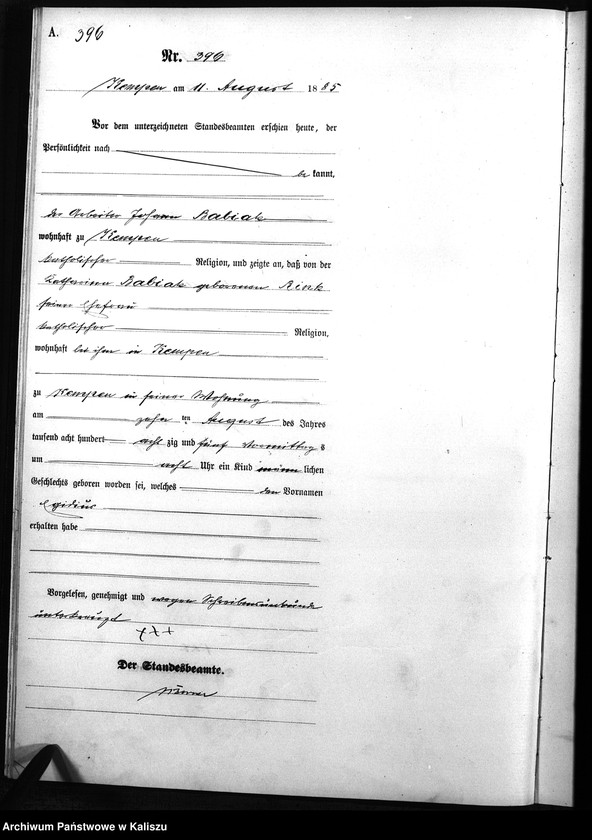 A. 396
Nr. 396
Kempen am 11. August 1885
Vor dem unterzeichneten Standesbeamten erschien heute, der
Persönlichkeit nach
be kannt,
der Arbeiter Johann Babiak
wohnhaft zu Kempen
katholischer Religion, und zeigte an, daß von der
Katharina Babiak geborenen Rink
seiner Ehefrau
katholischer Religion,
wohnhaft bei ihm in Kempen
zu Kempen in seiner Wohnung
am zehn ten August des Jahres
tausend acht hundert acht zig und fünf Vormittag s
um acht Uhr ein Kind männ lichen
Geschlechts geboren worden sei, welches den Vornamen
Egidius
erhalten habe
Vorgelesen, genehmigt und wegen Schreibensunkunde
unterkreuzt
+++
Der Standesbeamte.
Archiwum Państwowe w Kaliszu